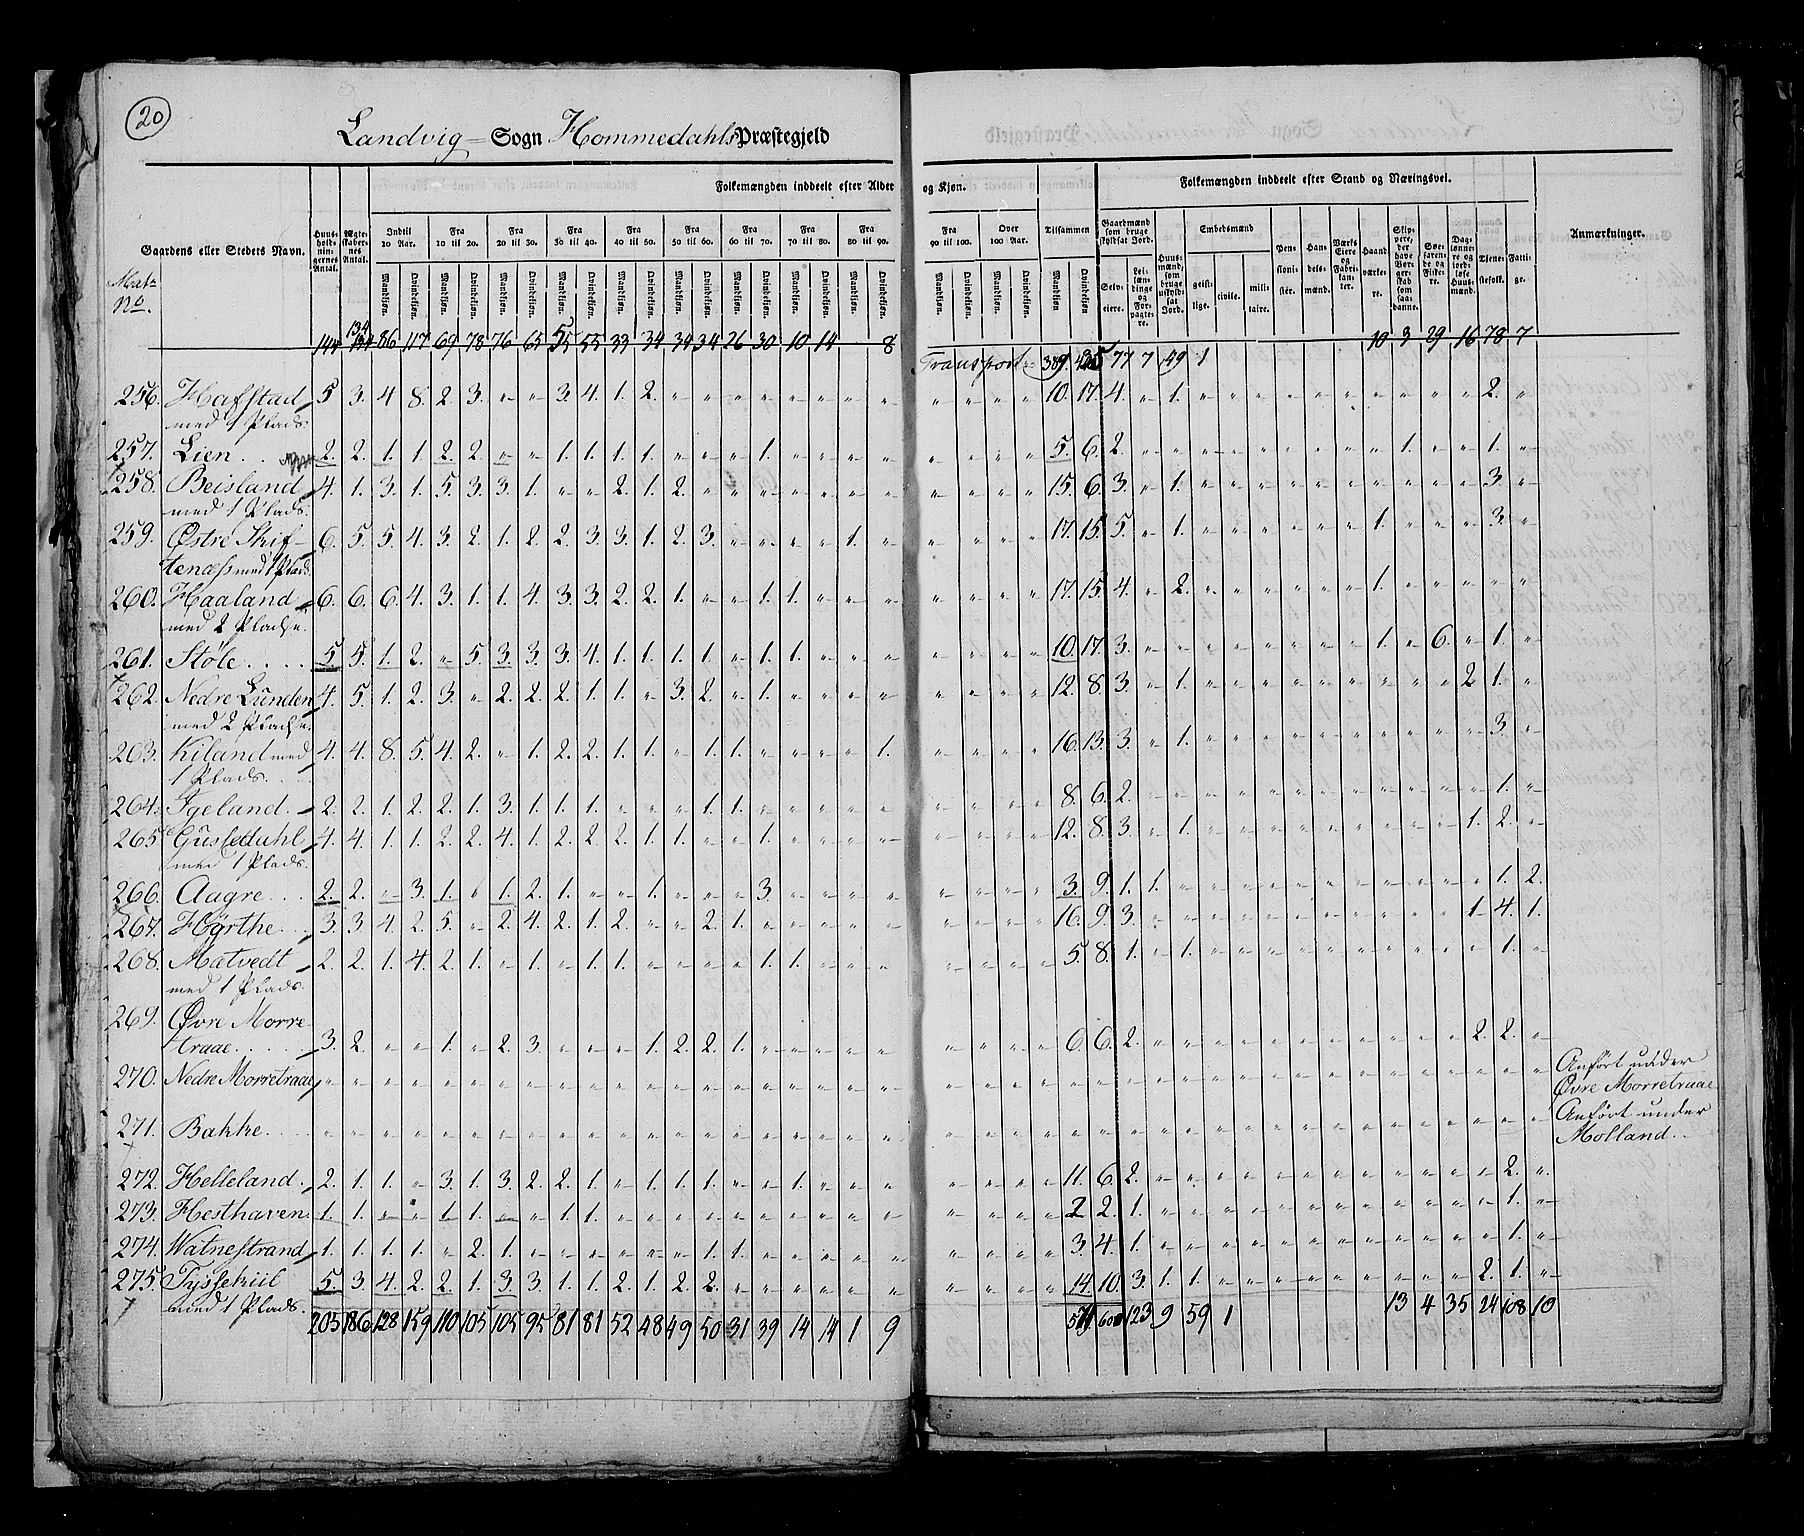 20
Landvig Sogn Hommedahls Præstegjeld
Folkemængden inddeelt efter Alder og Kjøn. Folkemængden inddeelt efter Stand og Næringsvei.
Gaardens eller Stedets Navn. Huusholdningernes Antal. Ægteskabernes Antal. Indtil 10 Aar. Fra 10 til 20. Fra 20 til 30. Fra 30 til 40. Fra 40 til 50. Fra 50 til 60. Fra 60 til 70. Fra 70 til 80. Fra 80 til 90. Fra 90 til 100. Over 100 Aar. Tilsammen Gaardmænd som bruge skyldsat Jord. Huusmænd, som bruge uskyldsat Jord. Embedsmænd Pensionister. Handelsmænd. Værks Eiere og Fabrikanter. Haandværkere. Skippere, der have Borgerskab som saadanne. Søefarende og Fiskere. Daglønnere og jordløse Huusmænd. Tjenestefolk. Fattige. Anmærkninger.
Mandkjøn. Qvindekjøn. Selveiere. Leilændinge og Forpagtere. geistlige. civile. militaire.
Mat No.
144 134 86 117 69 78 76 65 55 55 33 34 34 34 26 30 10 14 8 Transport 389 425 77 7 49 1 10 3 29 16 78 7
256. Hafstad 5 3. 4 8. 2. 3. " " 3. 4. 1. 2. 10. 17. 4. " 1. 2. "
med 1 Plads.
257. Lien 2. 2. 1. 1. 2. 2. " " 1. 1. 1. 1. " " " 1. 5. 6. 2. 1. 1.
258. Beisland 4. 1. 3. 1. 5. 3. 3. 1. " " 2. 1. 2. 15. 6. 3. " 1. 3.
med 1 Plads.
259. Østre Skif- 6. 5. 5. 4. 3. 2. 1. 2. 2. 3. 3. 1. 2. 3. " " " " 1. " 17. 15. 5. " 1. 1. 3.
tenæss med 1 Plads.
260. Haaland 6. 6. 6. 4. 3. 1. 1. 4. 3. 3. 2. 2. 1. " " 1. 1. 17. 15. 4. " 2. 1.
med 2 Pladse.
261. Støle 5. 5. 1. 2. " 5. 3. 3. 3. 4. 1. 1. 1. 1. " 1. 1. 10. 17. 3. 1. " 6. " 1. "
262. Nedre Lunden 4. 5. 1. 2. 3. " 2. 2. 2. 1. 1. " 3. 2. " 1. 12. 8. 3. " 1. 2 1.
med 2 Pladse.
263. Kiland med 4. 4. 8. 5. 4. 2. " 1. 2. 2. 1. 1. " 1. 1. " " " " 1. 16. 13. 3. " 1. 3.
1 Plads.
264. Igeland. 2. 2. 1. 2. 2. 1. 3. 1. 1. 1. " " " 1. 1. 8. 6. 2. 1.
265 Gusledahl 4. 4. 1. 1. 2. 2. 4. 1. 2. 2. 2. 1. 1. " " 1. 12. 8. 3. " 1. 1. 2.
med 1 Plads.
266. Aagre 2. 2. " 3. 1. " 1. 2. 1. " " 1. " " " 3. 3. 9. 1. 1. 1. 2.
267. Hørthe 3. 3 4. 2. 5. " 2. 4. 2. 1. 2. " " 2. 1. 16. 9. 3. 1. 4. 1.
268. Matvedt 2. 2. 1. 4. 2. 1. " 1. " 1. 1. " " " " 1. 1. 5. 8. 1. " 1. 1.
med 1 Plads.
269. Øvre Morre-
traae. 3. 2. " " 1. " 2. 3. " " " 1. 2. 2. 1. 6. 6. 2. 2. 2. "
270. Nedre Morretraae Anført under
Øvre Morretraae
271. Bakke Anført under
Molland.
272. Helleland. 2. 1. 1. " 3. 1. 3. 2. 2. 1. " 1. 1. 1. " " 1. 11. 6. 2. 2. "
273. Hesthaven 1. 1. " " 1. 1. " " 1. 1. 2 2. 1. 1. "
274. Watnestrand 1. 1. 1. 1. " 2. 1. " " " " " " 1. 1. 3. 4. 1. 1. "
275. Tyssekiil 5. 3. 4. 2. 2. 1. 3. 3. 1. 1. 2. 1. 2. 2. 14. 10. 3. 1. 1. 2. 1. "
med 1 Plads.
205 186 128 159 110 105 105 95 81 81 52 48 49 50 31 39 14 14 1 9 123 9 59 1 13 4 35 24 108 10